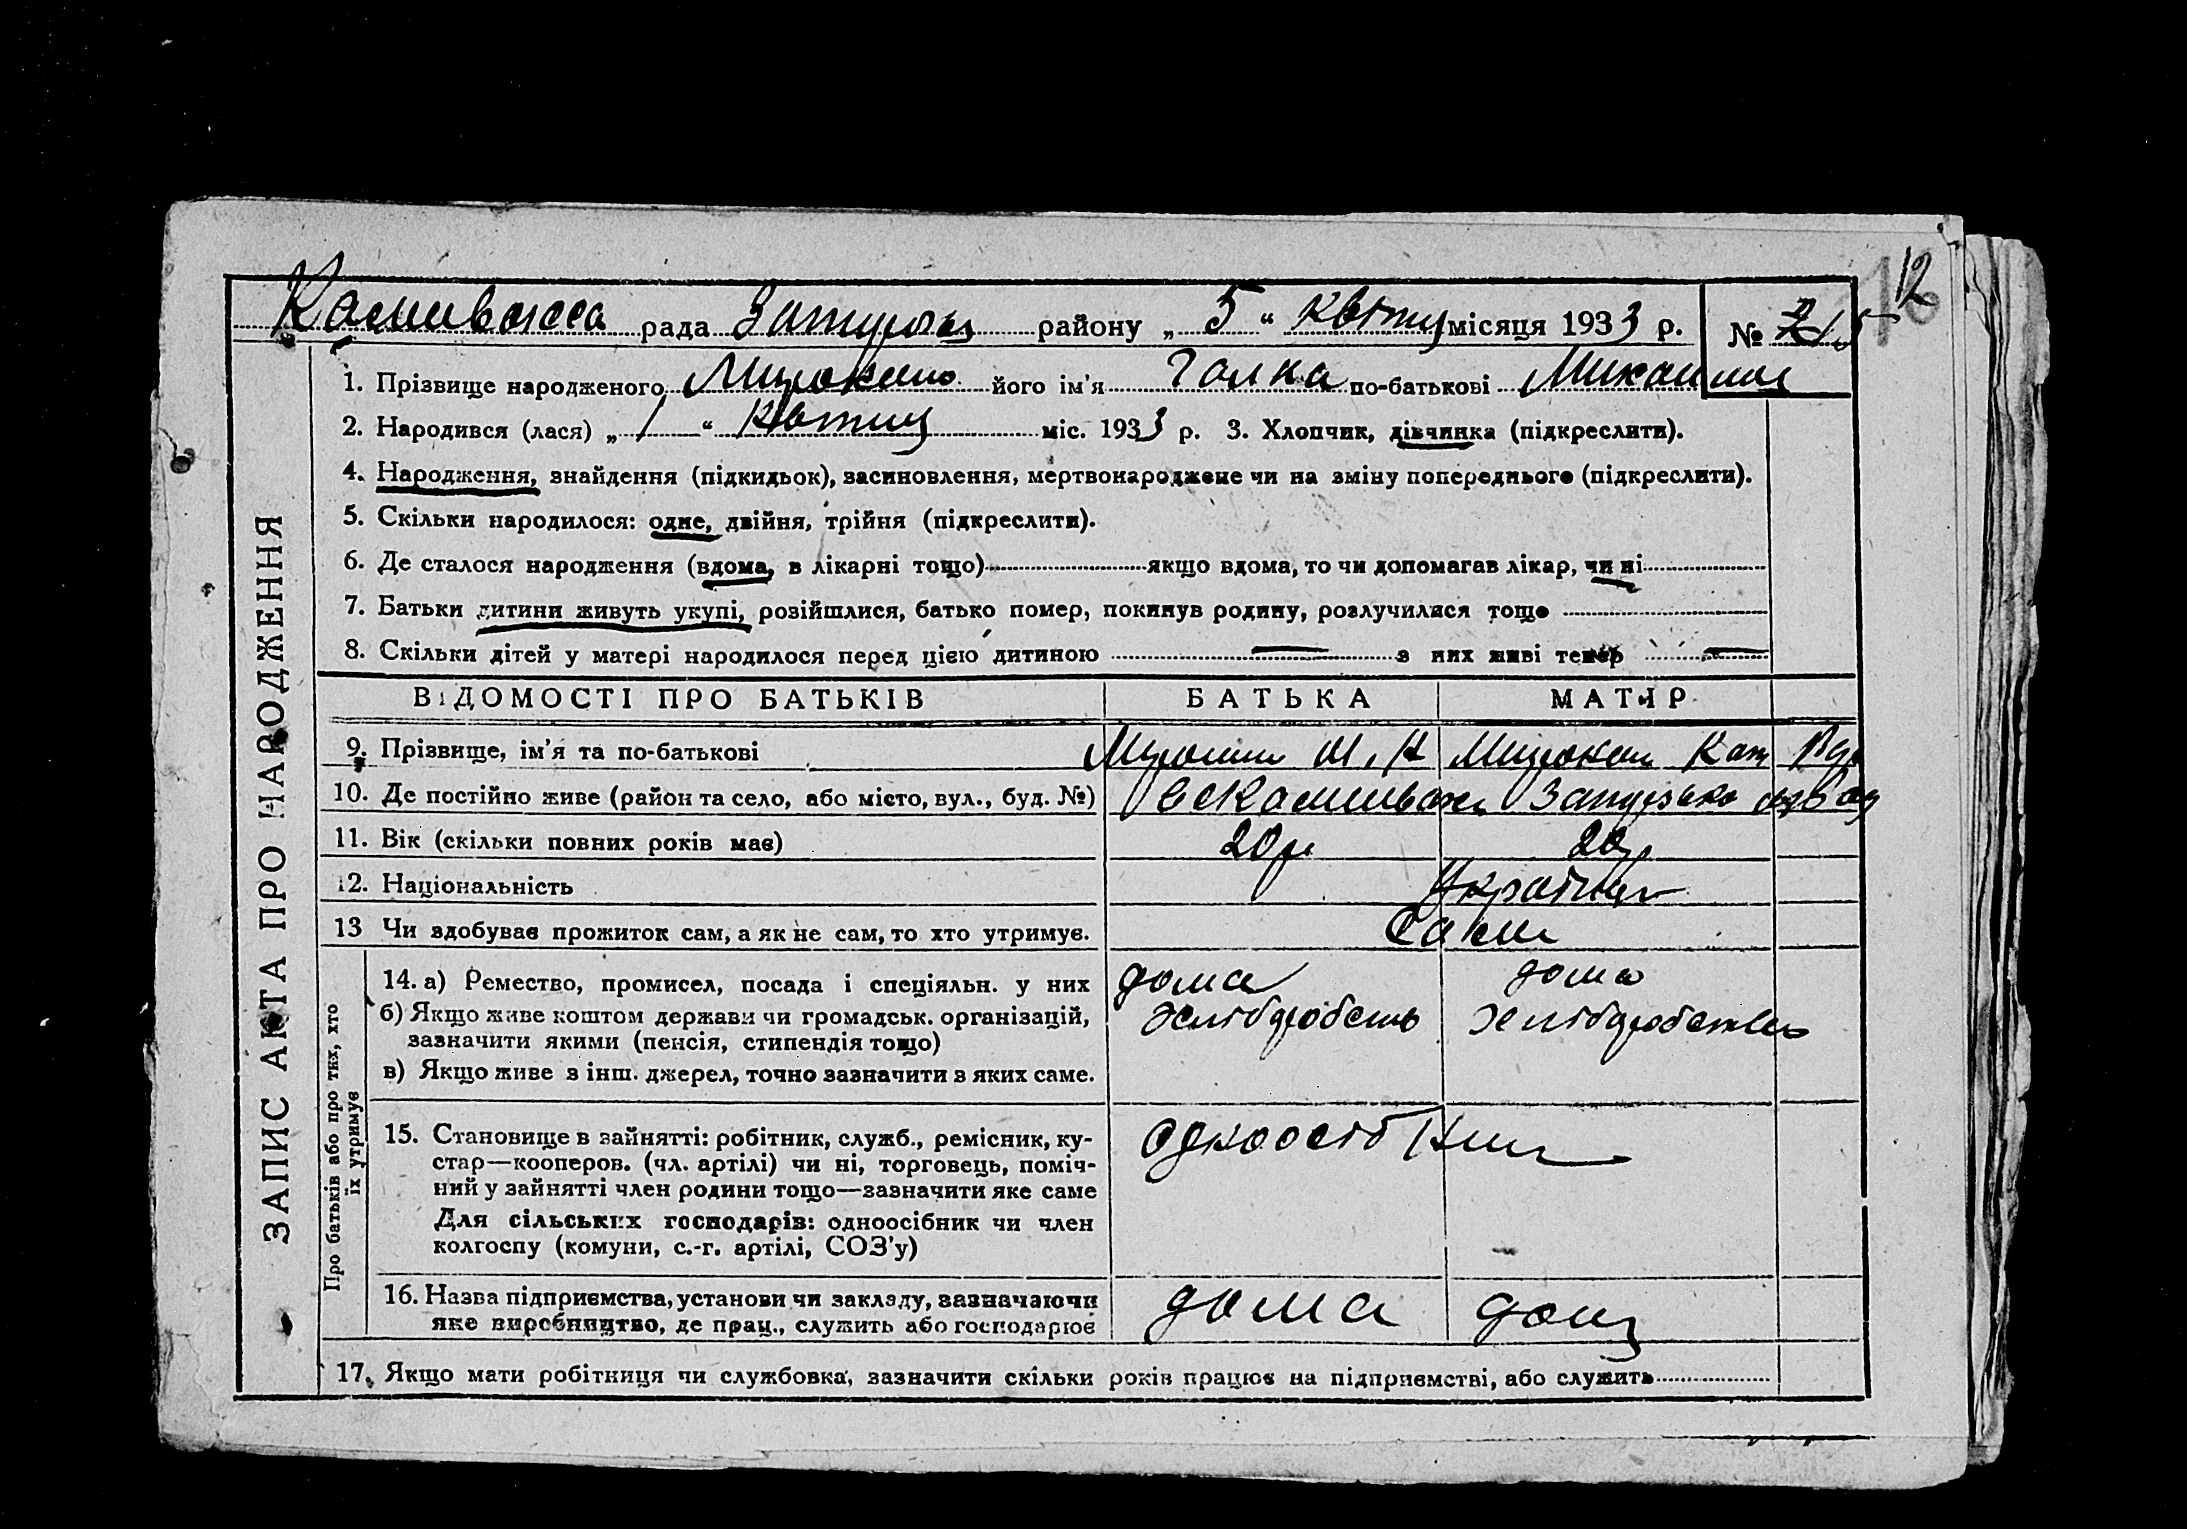 12
рада району „ 5 “ місяця 1933 р. №
1. Прізвище народженого його ім'я Галка по-батькові
2. Народився (лася) „ 1 “ міс. 1933 р. 3. Хлопчик, дівчинка (підкреслити).
4. Народження, знайдення (підкидьок), засиновлення, мертвонароджене чи на зміну попереднього (підкреслити).
5. Скільки народилося: одне, двійня, трійня (підкреслити).
6. Де сталося народження (вдома, в лікарні тощо) якщо вдома, то чи допомагав лікар, чи ні
7. Батьки дитини живуть укупі, розійшлися, батько помер, покинув родину, розлучилися тощо
8. Скільки дітей у матері народилося перед цією дитиною — з них живі тепер —
ЗАПИС АКТА ПРО НАРОДЖЕННЯ
ВІДОМОСТІ ПРО БАТЬКІВ БАТЬКА МАТІР
9. Прізвище, ім'я та по-батькові
10. Де постійно живе (район та село, або місто, вул., буд. №)
11. Вік (скільки повних років має) 20 р 20 р
12. Національність
13 Чи здобуває прожиток сам, а як не сам, то хто утримує. Сами
Про батьків або про тих, хто їх утримує
14. а) Ремество, промисел, посада і спеціяльн. у них дома дома
б) Якщо живе коштом держави чи громадськ. організацій, хлібдробень
зазначити якими (пенсія, стипендія тощо)
в) Якщо живе з інш. джерел, точно зазначити з яких саме.
15. Становище в зайнятті: робітник, служб., ремісник, ку-
стар—кооперов. (чл. артілі) чи ні, торговець, поміч-
ний у зайнятті член родини тощо—зазначити яке саме
Для сільських господарів: одноосібник чи член
колгоспу (комуни, с.-г. артілі, СОЗ'у)
16. Назва підприємства, установи чи закладу, зазначаючи дома дома
яке виробництво, де прац., служить або господарює
17. Якщо мати робітниця чи службовка, зазначити скільки років працює на підприємстві, або служить